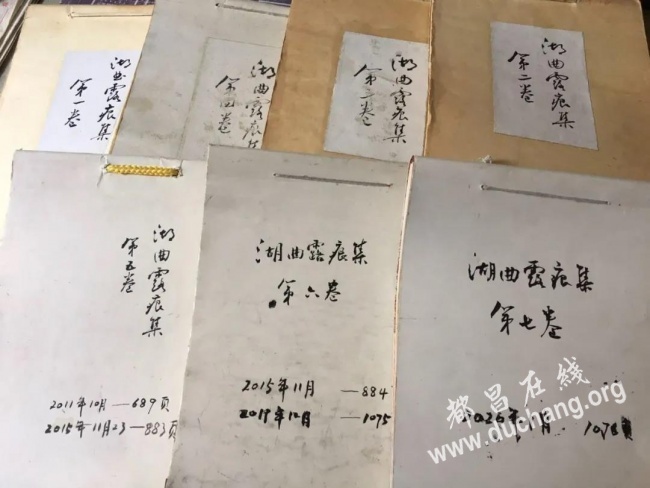 湖曲露痕集
第一卷
湖曲露痕集
第四卷
湖曲露痕集
第三卷
湖曲露痕集
第二卷
湖曲露痕集
第五卷
2011年10月—689页
2015年11月23—883页
湖曲露痕集
第六卷
2015年11月 —884
2019年12月 —1075
湖曲露痕集
第七卷
年 月 页
都昌在線
www.duchang.org